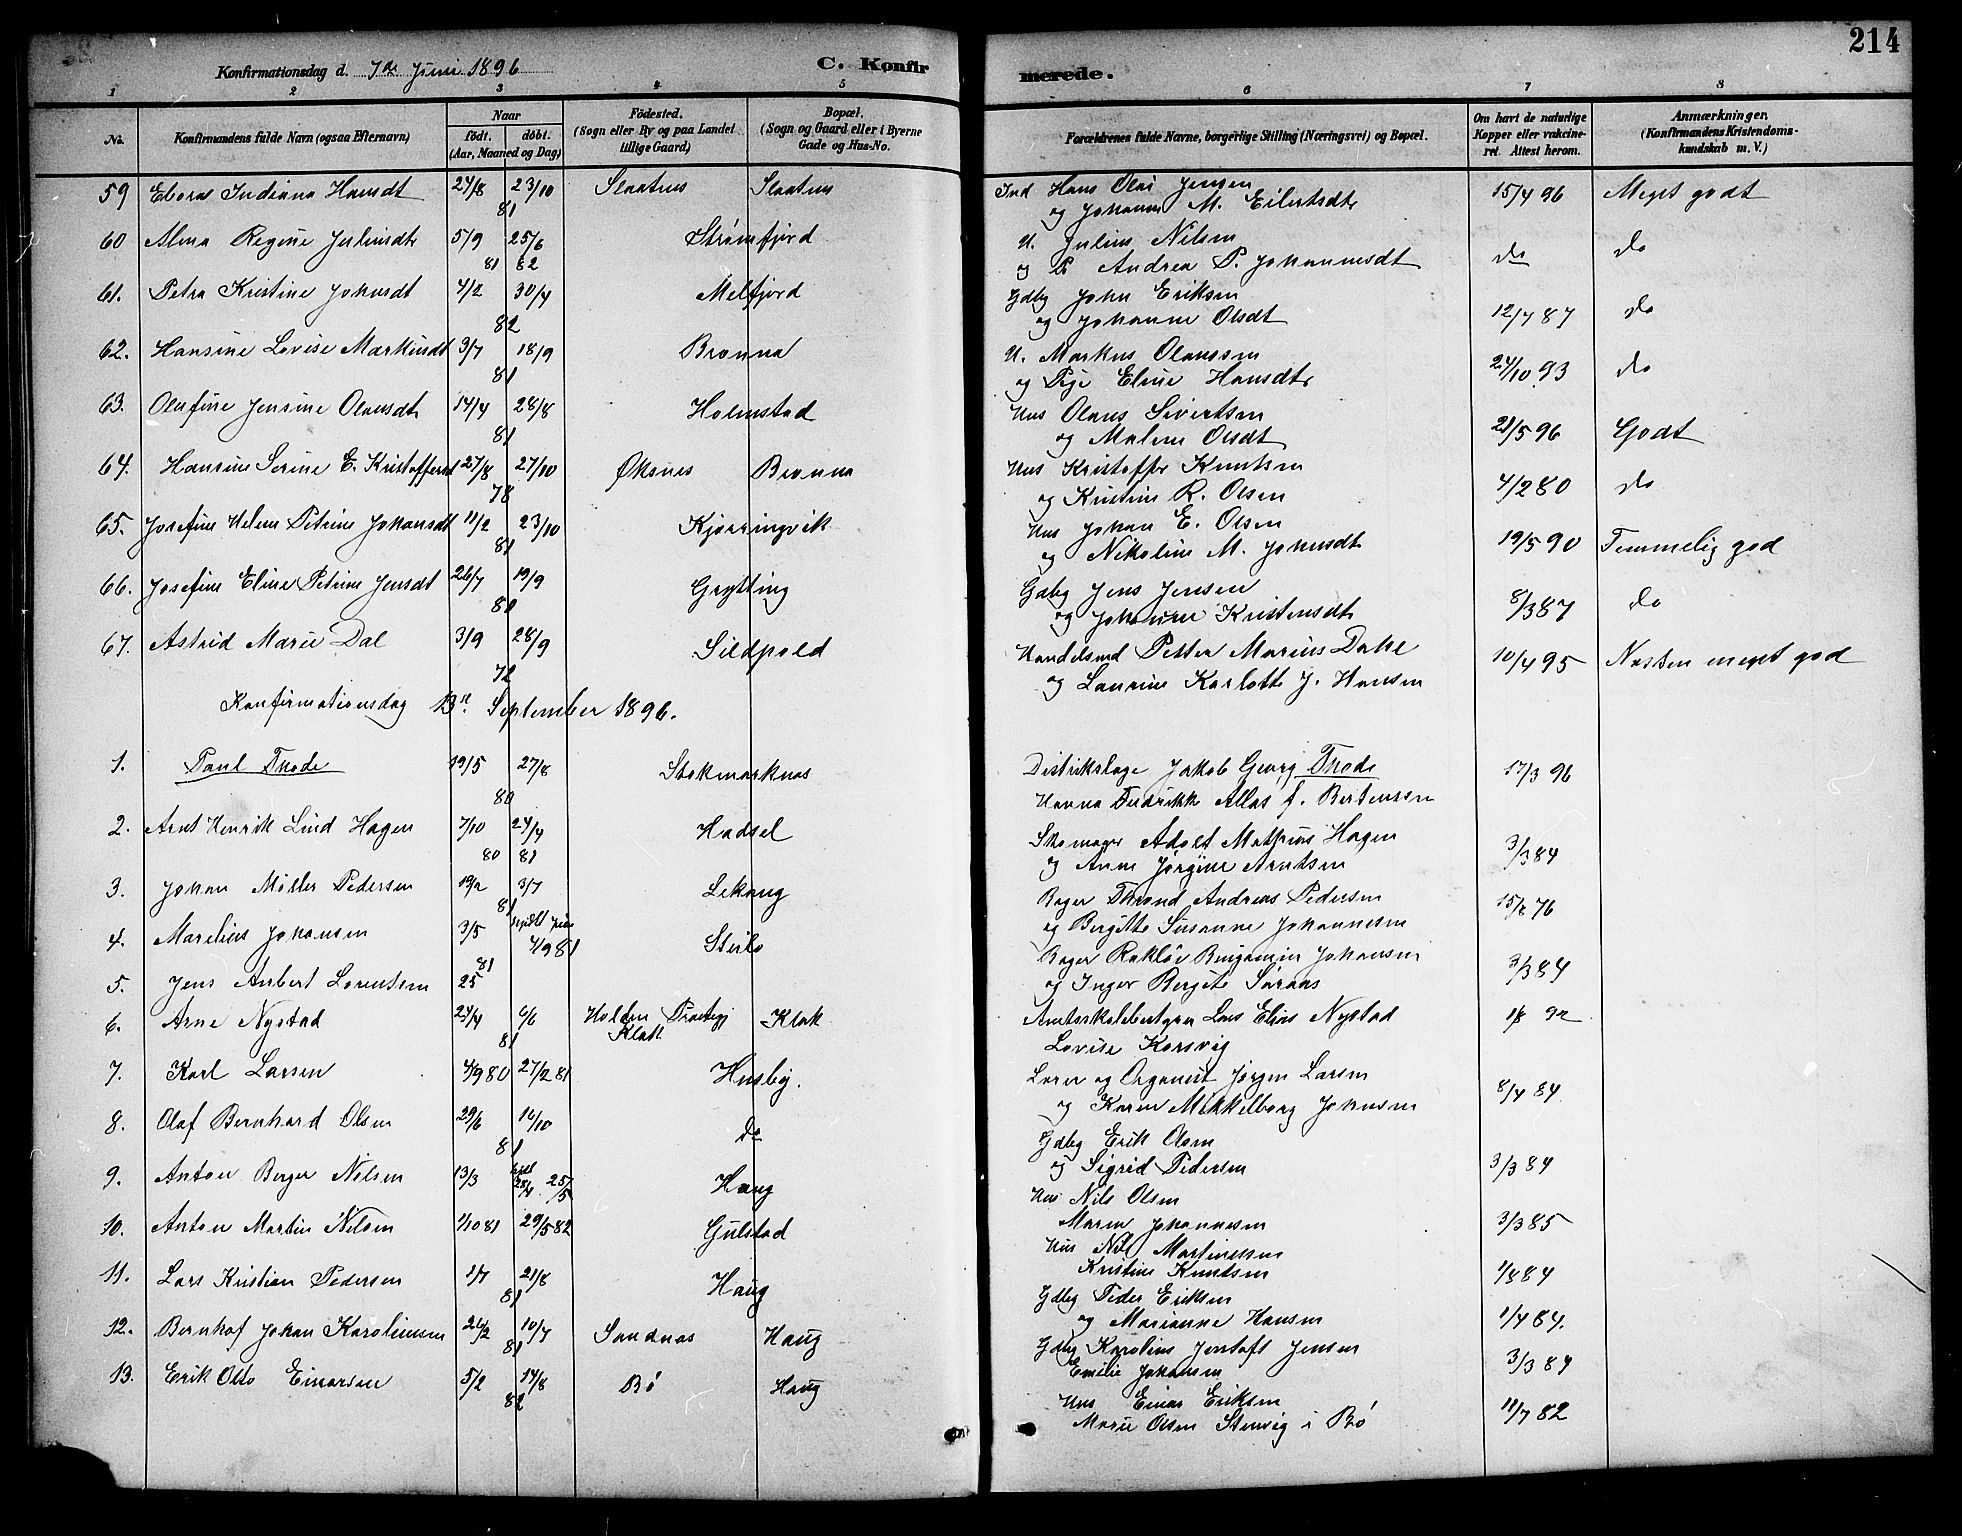 214
Konfirmationsdag d. 7de Juni 1896 C. Konfirmerede.
1 2 3 4 5 6 7 8
No. Konfirmandens fulde Navn (ogsaa Efternavn) Naar födt. döbt. (Aar, Maaned og Dag) Födested. (Sogn eller By og paa Landet tillige Gaard) Bopæl. (Sogn og Gaard eller i Byerne Gade og Hus-No. Forældrenes fulde Navne, borgerlige Stilling (Næringsvei) og Bopæl. Om havt de naturlige Kopper eller vakcineret. Attest herom. Anmærkninger. (Konfirmandens Kristendomskundskab m. V.)
59 Ebora Indiana Hansdt 24/8 81 23/10 Slaatnes Slaatnes Ind Hans Olai Jensen 15/4 96 Meget godt
og Johanne M. Eilertsdtr
60 Alma Regine Juliusdtr 5/9 81 25/6 82 Strømfjord U. Julius Nilsen do do
og Andrea P. Johannesdt
61. Petra Kristine Johnsdt 4/2 82 30/4 Melfjord Gdbg John Eriksen 12/7 87 do
og Johanne Olsdt
62. Hansine Lovise Markusdt 3/7 81 18/9 Bronna U. Markus Olaussen 24/10 93 do
og Eline Hansdtr
63. Olufine Jensine Olausdt 14/4 81 28/8 Holmstad Hus Olaus Sivertsen 21/5 96 Godt
og Malene Olsdt
64. Hansine Serine E. Kristoffersd 27/8 78 27/10 Øksnes Bronna Hus Kristoffer Knutsen 4/2 80 do
og Kristine R. Olsen
65. Josefine Helene Petrine Johansdt 11/2 81 23/10 Kjørringvik Hus Johan E. Olsen 19/5 90 Temmelig god
og Nikoline M. Johnsdt
66. Josefine Eline Petrine Jensdt 26/7 81 19/9 Grytting Gdbg Jens Jensen 8/3 87 do
og Johanne Kristensdtr
67. Astrid Marie Dal 3/9 72 28/9 Sildpold Handelsmd Petter Marius Dahl 10/4 95 Næsten meget god
og Laurine Karlotte J. Hansen
Konfirmationsdag 13de September 1896.
1. Paul Thode 19/5 80 27/8 Stokmarknæs Distriktslæge Jakob Georg Thode 17/3 96
Hanna Fredrikke f. Bertensen
2. Arnt Henrik Lind Hagen 7/10 80 24/4 81 Hadsel Skomager Adolt Mathias Hagen 3/3 84
og Anne Jørgine Arntsen
3. Johan Möller Pedersen 19/2 81 3/7 Lekang Bøger Thrond Andreas Pedersen 15/8 76
og Bergitte Susanne Johannesen
4. Marelius Johansen 3/5 81 4/9 81 Steilo Bager Benjamin Johansen 3/3 84
og Inger Bergete
5. Jens Anbert Lorentsen 25
6. Arne Nystad 24/4 81 6/6 Holden Præstegj Klak Amtsskolebestyrer Lars Elias Nystad 1/8 92
Lovise Korsvig
7. Karl Larsen 4/9 80 27/2 81 Husby. Lærer og Organist Jørgen Larsen 8/4 84
og Karen Mikkelborg Johnsen
8. Olaf Bernhard Olsen 29/6 81 16/10 do Gdbg Erik Olsen 3/3 84
og Sigrid Pedersen
9. Anton Berger Nilsen 13/3 25/5 Haug Hus Nils Olsen 3/3 85
Maren Johannesen
10. Anton Martin Nilsen 1/10 81 29/5 82 Gulstad Hus Nils Martinussen 1/8 84
Kristine Knudsen
11. Lars Kristian Pedersen 1/7 81 21/8 Haug Gdbg Peder Eriksen 1/4 84.
og Marianne Hansen
12. Bernhof Johan Karoliussen 26/2 81 10/7 Sandnes Haug Gdbg Karolius Jentoft Jensen 3/3 84
Emilie Johansen
13. Erik Otto Einarsen 5/2 82 14/8 Bö Haug Hus Einar Eriksen 11/7 82
Marie Olsen Stenvig i Bö